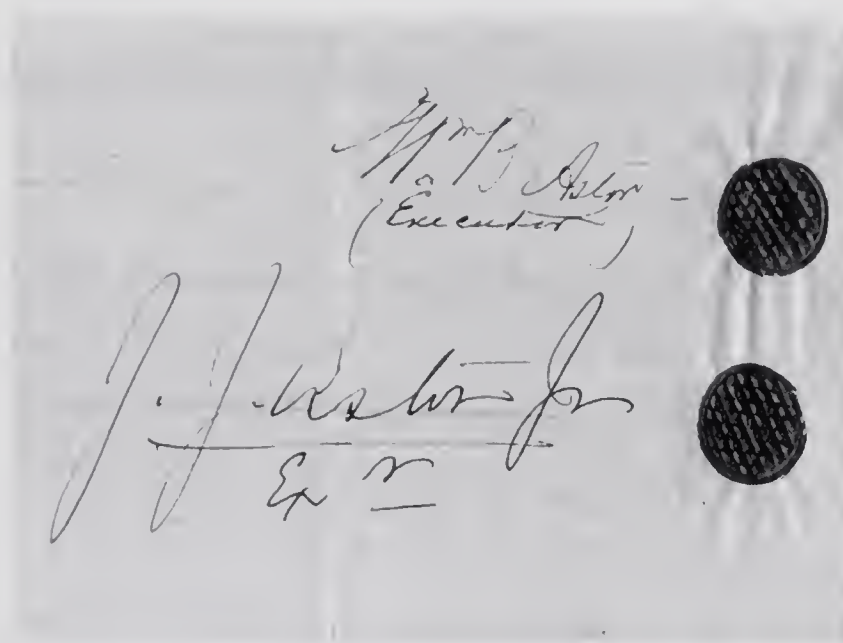 Wm B Astor -
(Executor)
J. J. Astor Jr
Ex r